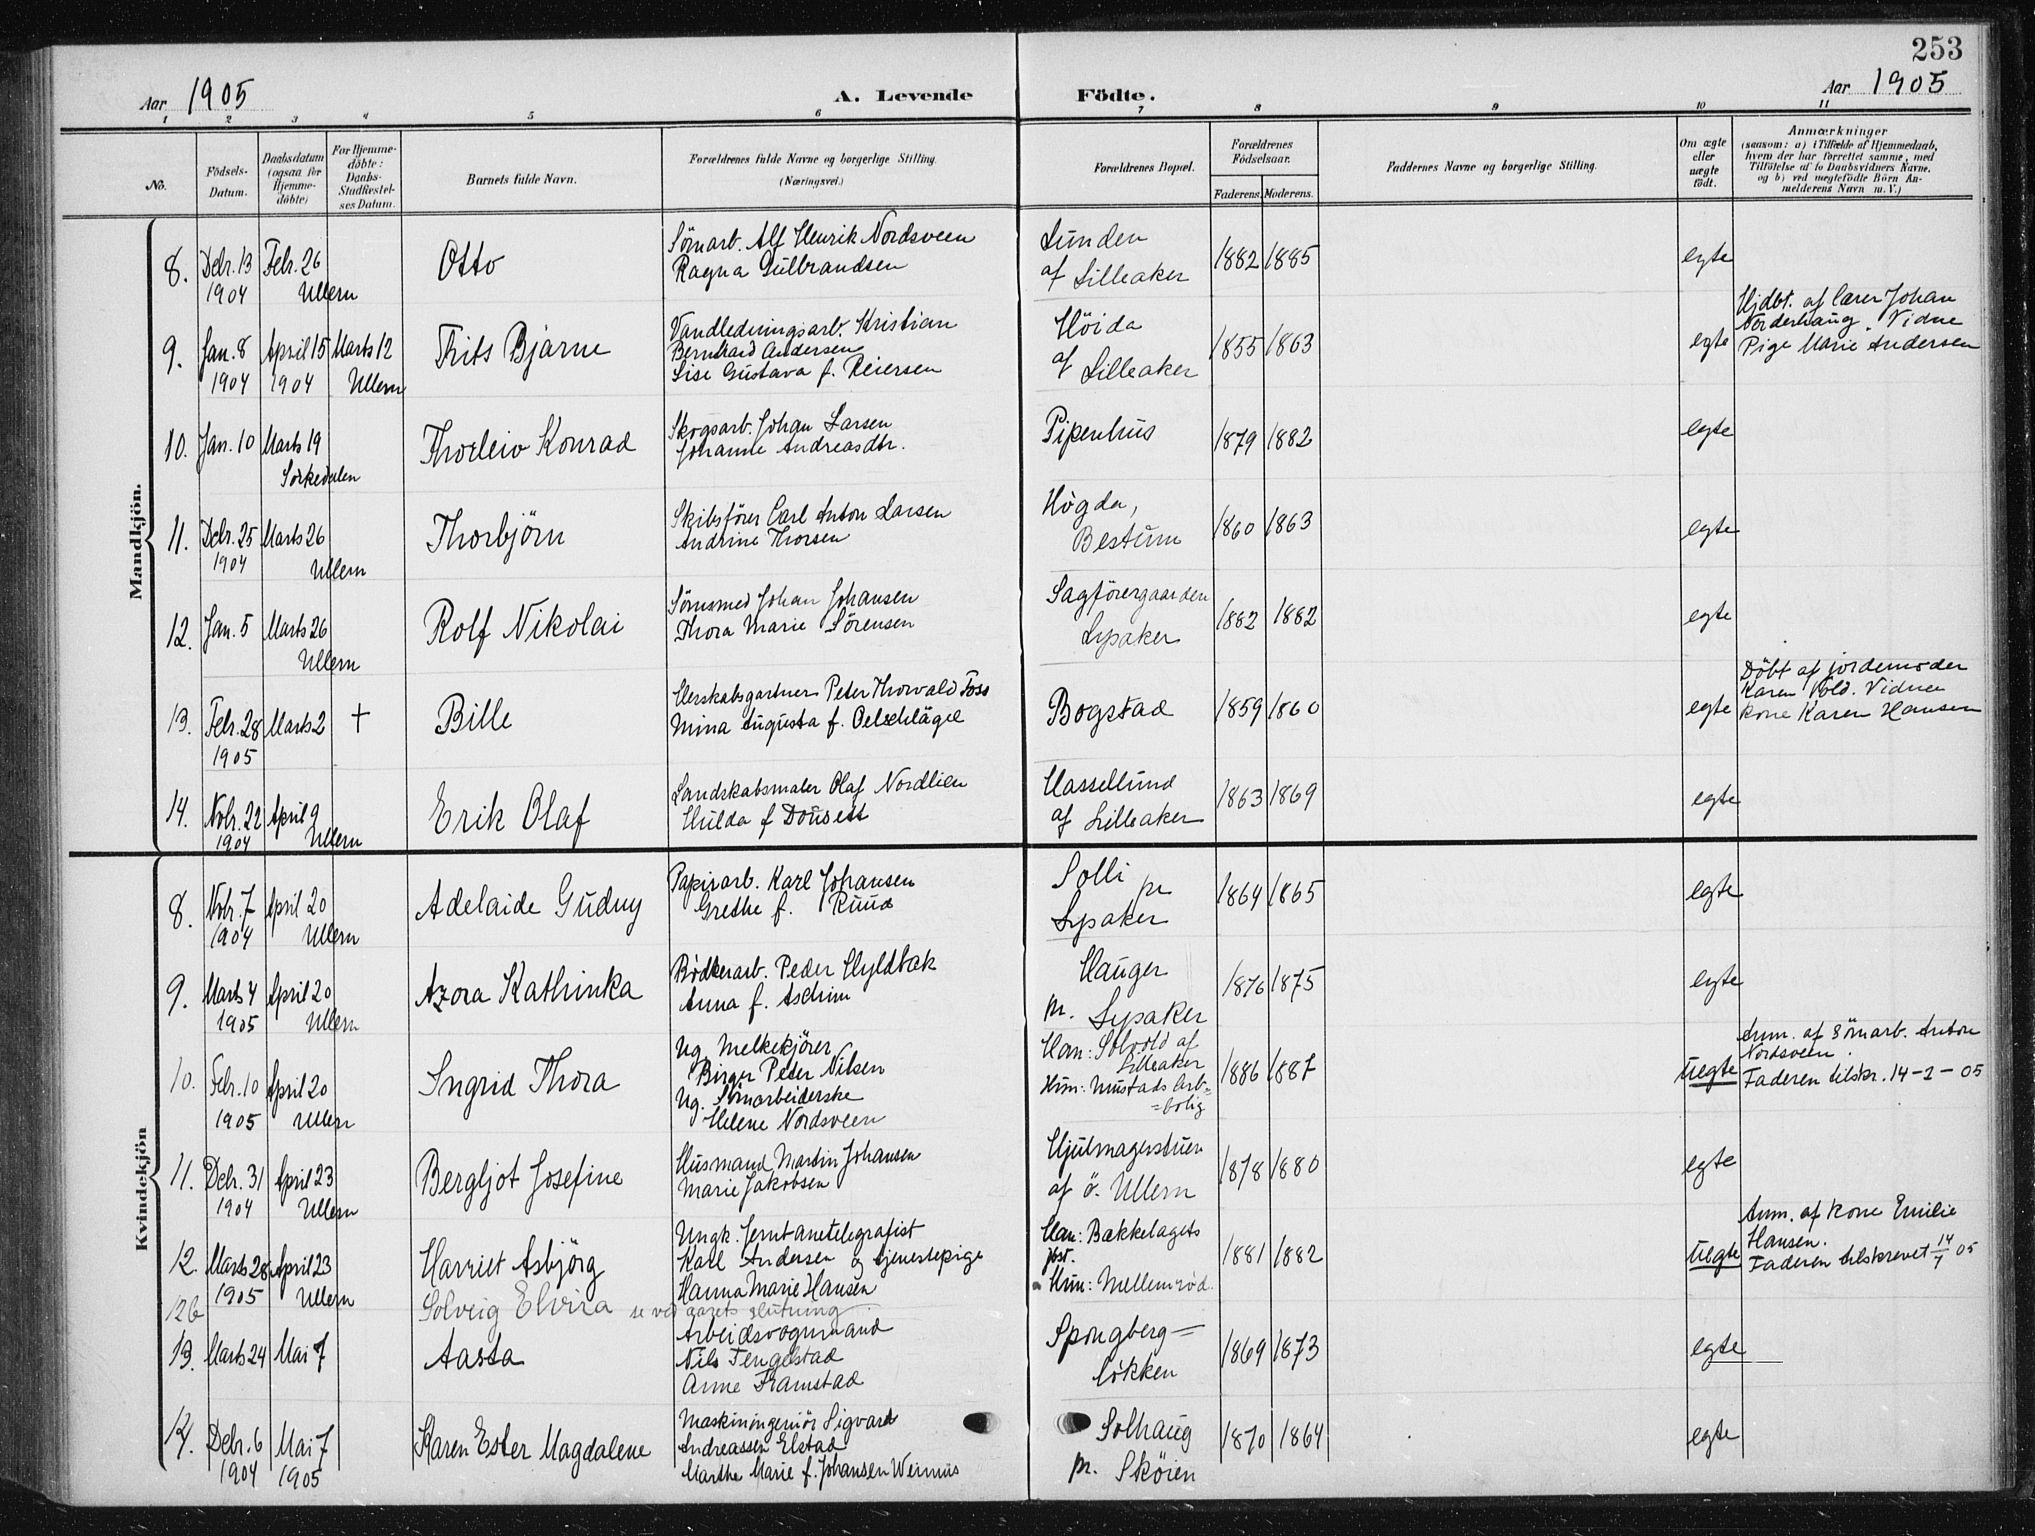 253
Aar 1905 A. Levende Födte. Aar 1905
1 2 3 4 5 6 7 8 9 10 11
No.
Födsels-Datum.
Daabsdatum (ogsaa for Hjemme-döbte)
For Hjemme-döbte: Daabs-Stadfæstel-ses Datum.
Barnets fulde Navn.
Forældrenes fulde Navne og borgerlige Stilling.
(Næringsvei.)
Forældrenes Bopæl.
Forældrenes Födselsaar.
Faderens. Moderens.
Faddernes Navne og borgerlige Stilling.
Om ægte eller uægte födt.
Anmærkninger
(saasom: a) i Tilfælde af Hjemmedaab, hvem der har forrettet samme, med Tilföielse af to Daabsvidners Navne, og b) ved uægtefödte Börn An-melderens Navn m. V.)
Mandkjön.
8. Debr. 13 1904 Febr. 26 Ullern Otto
Sömarb. Alf Henrik Nordsveen
Ragna Gulbrandsen
Lunden
af Lilleaker
1882 1885 egte
9. Jan. 8 1904 April 15 1904 Marts 12 Ullern Frits Bjarne
Vandledningsarb. Kristian
Bernhard Andersen
Lise Gustava f. Reiersen
Höida
af Lilleaker
1855 1863 egte
Hjdbt. af lærer Johan
Norderhaug. Vidne
Pige Marie Andersen
10. Jan. 10 Marts 19 Sörkedalen Thorleiv Konrad
Skogsarb. Johan Larsen
Johanne Andreasdtr.
Pipenhus
1879 1882 egte
11. Debr. 25 1904 Marts 26 Ullern Thorbjörn
Skibsförer Carl Anton Larsen
Andrine Thorsen
Högda,
Bestum
1860 1863 egte
12. Jan. 5 Marts 26 Ullern Rolf Nikolai
Sömsmed Johan Johansen
Thora Marie Sörensen
Sagförergaarden
Lysaker
1882 1882 egte
13. Febr. 28 1905 Marts 2 † Bille
Herskabsgartner Peter Thorvald Foss
Mina Augusta f. Oelschlägel
Bogstad
1859 1860 egte
Döbt af jordemoder
Karen Vold. Vidne
kone Karen Hansen
14. Novbr. 22 1904 April 9 Ullern Erik Olaf
Landskabsmaler Olaf Nordlien
Hulda f Dousett
Hassellund
af Lilleaker
1863 1869 egte
Kvindekjön
8. Nvbr. 7 1904 April 20 Ullern Adelaide Gudny
Papirarb. Karl Johansen
Grethe f. Ruud
Solli pr
Lysaker
1864 1865 egte
9. Marts 4 1905 April 20 Ullern Azora Kathinka
Bödkerarb. Peder Hyldbak
Anna f. Aschim
Hauger
pr. Lysaker
1876 1875 egte
10. Febr. 10 1905 April 20 Ullern Ingrid Thora
Ug. Melkekjörer
Birger Peter Nilsen
Ug. Sömarbeiderske
Helene Nordsveen
Han: Solvold af
Lilleaker
Hun: Mustads Arb=
=bolig
1886 1887 uegte
Anm. af Sömarb. Anton
Nordsveen.
Faderen tilskr. 14-2-05
11. Debr. 31 1904 April 23 Ullern Bergljot Josefine
Husmand Martin Johansen
Marie Jakobsen
Hjulmagerstuen
af ö. Ullern
1878 1880 egte
12. Marts 28 1905 April 23 Ullern Harriet Asbjörg
Ungk. Jernbanetelegrafist
Karl Andersen & tjenestepige
Hanna Marie Hansen
Han: Bækkelagets
post.
Hun: Mellemröd.
1881 1882 uegte
Anm. af kone Emilie
Hansen.
Faderen tilskrevet 14/7 05
12b Solveig Elvira se ved aarets slutning
13. Marts 24 Mai 7 Aasta
Arbeidsvognmand
Nils Tengelstad
Anne Framstad
Spongberg=
lökken
1869 1873 egte
14. Debr. 6 1904 Mai 7 1905 Karen Ester Magdalene
Maskiningeniör Sigvard
Andreassen Elstad
Marthe Marie f. Johansen Weinnus
Solhaug
pr. Sköien
1870 1864 egte